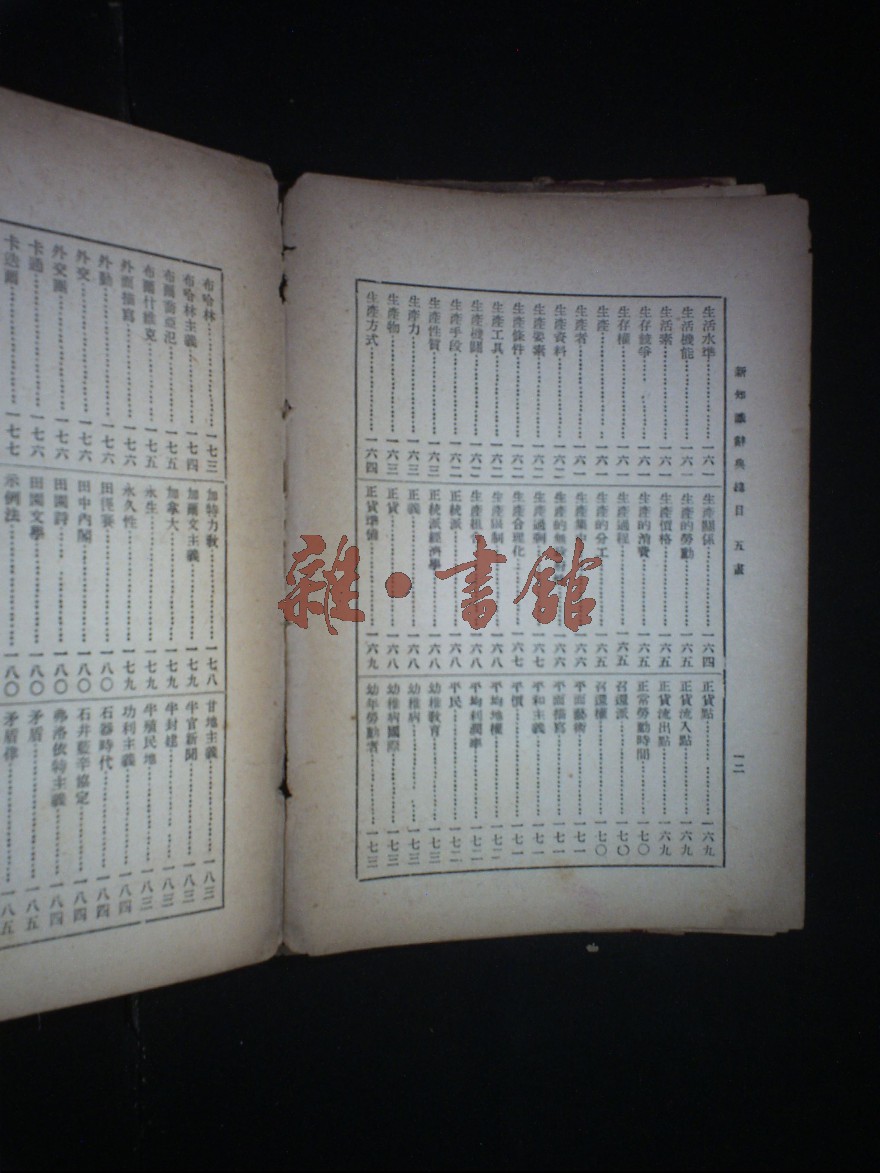 新知識辭典總目 五畫
一二
生活水準……一六一
生活機能……一六一
生活素……一六一
生存競爭……一六一
生存權……一六一
生產……一六一
生產者……一六一
生產資料……一六二
生產要素……一六二
生產條件……一六二
生產工具……一六二
生產機關……一六二
生產手段……一六二
生產性質……一六三
生產力……一六三
生產物……一六三
生產方式……一六四
生產關係……一六四
生產的勞動……一六五
生產價格……一六五
生產的消費……一六五
生產過程……一六五
生產的分工……一六五
生產集
生產的無
生產過剩……一六六
生產合理化……一六七
生產限制……一六八
生產組合……一六八
正統派……一六八
正統派經濟學……一六八
正義……一六八
正貨……一六九
正貨準備……一六九
正貨點……一六九
正貨流入點……一六九
正貨流出點……一六九
正常勞動時間……一七〇
召還派……一七〇
召還權……一七〇
平面藝術……一七一
平面描寫……一七一
平和主義……一七一
平價……一七一
平均地權……一七二
平均利潤率……一七二
平民……一七二
幼稚教育……一七三
幼稚病……一七三
幼稚病國際……一七三
幼年勞動者……一七三
布哈林……一七三
布哈林主義……一七四
布爾喬亞氾……一七五
布爾什維克……一七五
外面描寫……一七六
外勤……一七六
外交……一七六
外交團……一七六
卡通……一七六
卡迭爾……一七七
加特力教……一七八
加爾文主義……一七九
加拿大……一七九
永生……一七九
永久性……一七九
田徑賽……一八〇
田中內閣……一八〇
田園詩……一八〇
田園文學……一八〇
示例法……一八〇
甘地主義……一八三
半官新聞……一八三
半封建……一八三
半殖民地……一八三
功利主義……一八四
石器時代……一八四
石井藍辛協定……一八四
弗洛依特主義……一八四
矛盾……一八五
矛盾律……一八五
雜·書館